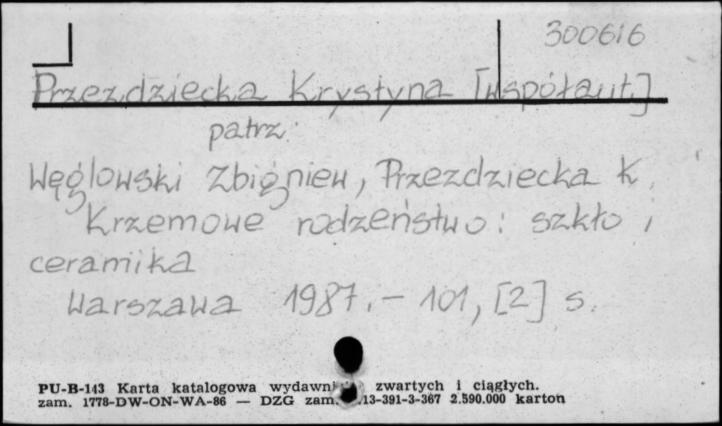 300616
Przezdziecka Krystyna [współaut.]
patrz:
Węglowski Zbigniew, Przezdziecka K.
Krzemowe rodzeństwo: szkło i
ceramika
Warszawa 1987. - 101, [2] s.
PU-B-143 Karta katalogowa zwartych i ciągłych.
zam. 1778-DW-ON-WA-86 — DZG zam. 13-391-3-367 2.590.000 karton